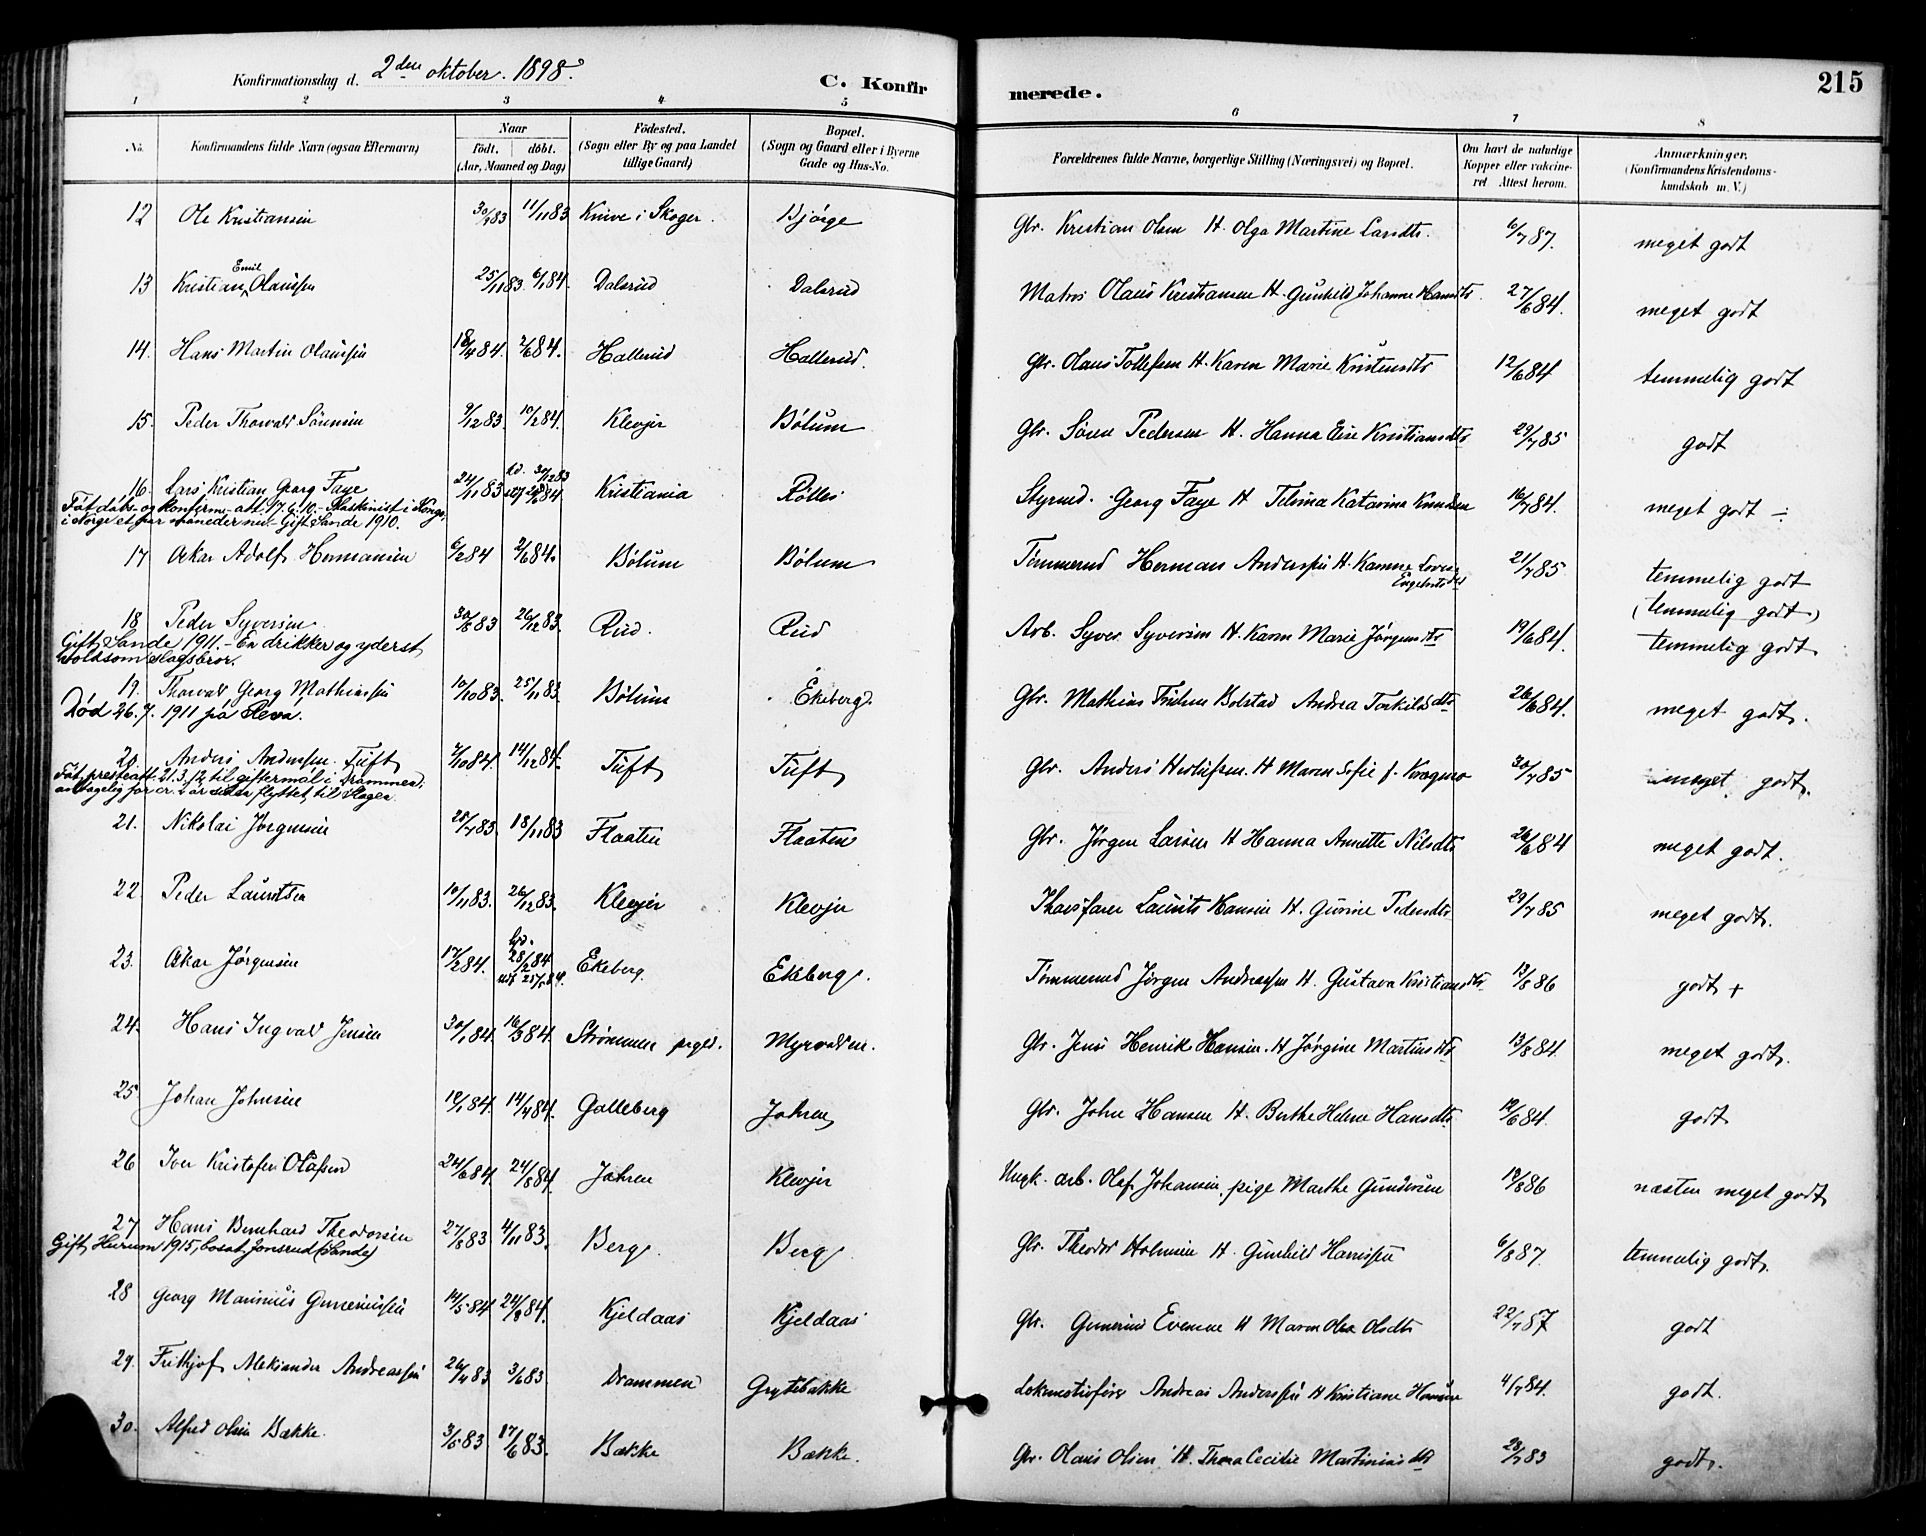 Konfirmationsdag d. 2den oktober. 1898.
C. Konfirmerede. 215
1 2 3 4 5 6 7 8
No. Konfirmandens fulde Navn (ogsaa Efternavn) Naar født. døbt. (Aar, Maaned og Dag) Fødested. (Sogn eller By og paa Landet tillige Gaard) Bopæl. (Sogn og Gaard eller i Byerne Gade og Hus-No. Forældrenes fulde Navne, borgerlige Stilling (Næringsvei) og Bopæl. Om havt de naturlige Kopper eller vakcineret Attest herom. Anmærkninger. (Konfirmandens Kristendomskundskab m. V.)
12 Ole Kristiansen 30/9 83 11/11 83 Knive i Skoger. Bjørge Gbr. Kristian Olsen H. Olga Martine Larsdtr. 6/7 87. meget godt
13 Kristian Emil Olaussen 25/11 83. 6/1 84. Dalsrud Dalsrud Matros Olaus Kristiansen H. Gunhild Johanne Hansdtr. 27/6 84. meget godt
14. Hans Martin Olaussen 18/4 84. 2/6 84. Hallerud Hallerud. Gbr. Olaus Tollefsen H. Karen Marie Kristensdtr 12/6 84 temmelig godt
15. Peder Thorvald Sørensen 9/12 83. 10/2 84. Klevjer Bølum Gbr. Søren Pedersen H. Hanna Elise Kristiansdtr 29/7 85 godt
16. Lars Kristian Georg Faye 24/11 83 hd. 30/12 83 Kristiania Rølles Styrmd. Georg Faye H Katarina Knudsen 16/7 84. meget godt ÷
Fåt dåbs- og konfirm.-att. 17.6.10.- Maskinist i Kongo,
i Norge et par måneder nu.- Gift Sande 1910.
17 Oskar Adolf Hermansen 6/2 84 2/6 84. Bølum Bølum Tømmermd Herman Anderssen H. Engebretsdtr 21/7 85. temmelig godt
18. Peder Syversen 30/8 83 26/12 83. Rud. Rud Arb. Syver Syversen H. Karen Marie Jørgensdtr 19/6 84. (temmelig godt) temmelig godt
Gift Sande 1911.- En drikker og yderst
voldsom slagsbror.
19. Thorvald Georg Mathiassen 10/10 83. 25/11 83. Bølum Ekeberg. Gbr. Mathias Bolstad Andrea Torkildsdtr 26/6 84. meget godt.
Død 26.7.1911 på Revå.
20. Anders Andersen Tuft 4/10 84. 14/12 84. Tuft Tuft Gbr. Anders Herlufsen H Maren Sofie f. Kragmo 30/7 85 meget godt.
Fåt presteatt. 21.3.12 til giftermål i Drammen,
antagelig for cr. 2 år siden flyttet til Skoger
21. Nikolai Jørgensen 25/7 83. 18/11 83 Flaaten Flaaten Gbr. Jørgen Larsen H Hanna Annette Nilsdtr 26/6 84 meget godt.
22. Peder Lauritsen 10/11 83. 26/12 83. Klevjer Klevjer Laurits Hansen H. Gurine Pedersdtr 29/7 85 meget godt.
23. Oskar Jørgensen 17/2 84. hd. 28/2 84 Ekeberg Ekeberg. Tømmermd Jørgen Andreassen H. Gustava Kristiansdtr. 13/8 86 godt +
24. Hans Ingvald Jensen 30/1 84. 16/3 84. Strømmen prgld. Myrvolden. Gbr. Jens Henrik Hansen. H Jørgine Martinsdtr 13/8 84. meget godt.
25. Johan Johnsen 12/1 84. 14/4 84. Galleberg Jahren Gbr. John Hansen H. Berthe Helene Hansdtr. 12/6 84. godt
26 Iver Kristofer Olafsen 24/6 84. 24/8 84. Jahren Klevjer Ungk. arb. Olaf Johansen, pige Marthe Gundersen 19/8 86 næsten meget godt
27 Hans Bernhard Theodorsen 27/8 83 4/11 83. Berg. Berg. Gbr. Theodor Holmsen H. Gunhild Hanssen 6/8 87. temmelig godt.
Gift Hurum 1915, bosat Jonsrud (Sande)
28 Georg Marinius Gunneriussen 14/5 84 24/8 84. Kjeldaas Kjeldaas Gbr. Gunerius Evensen H Maren Olea Olsdtr 22/7 87 godt
29. Frithjof Aleksander Andreassen 26/4 83 3/6 83 Drammen Grytebakke Lokomotivfører Andreas Anderssen H Kristiane Hansen 4/7 84. godt.
30. Alfred Olsen Bække. 3/5 83 17/6 83. Bække Bække. Gbr. Olaus Olsen H. Thora Cecilie Martiniusdtr 28/7 83 godt.